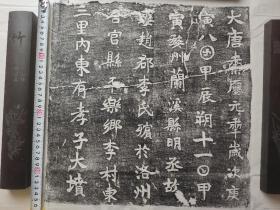 大唐元年歲次庚
寅八甲辰朔十一日甲
寅婺州蘭溪縣丞故
妻趙郡李氏殯於洛州
合宮縣平樂鄉李村東
里內東有孝子大墳
竹